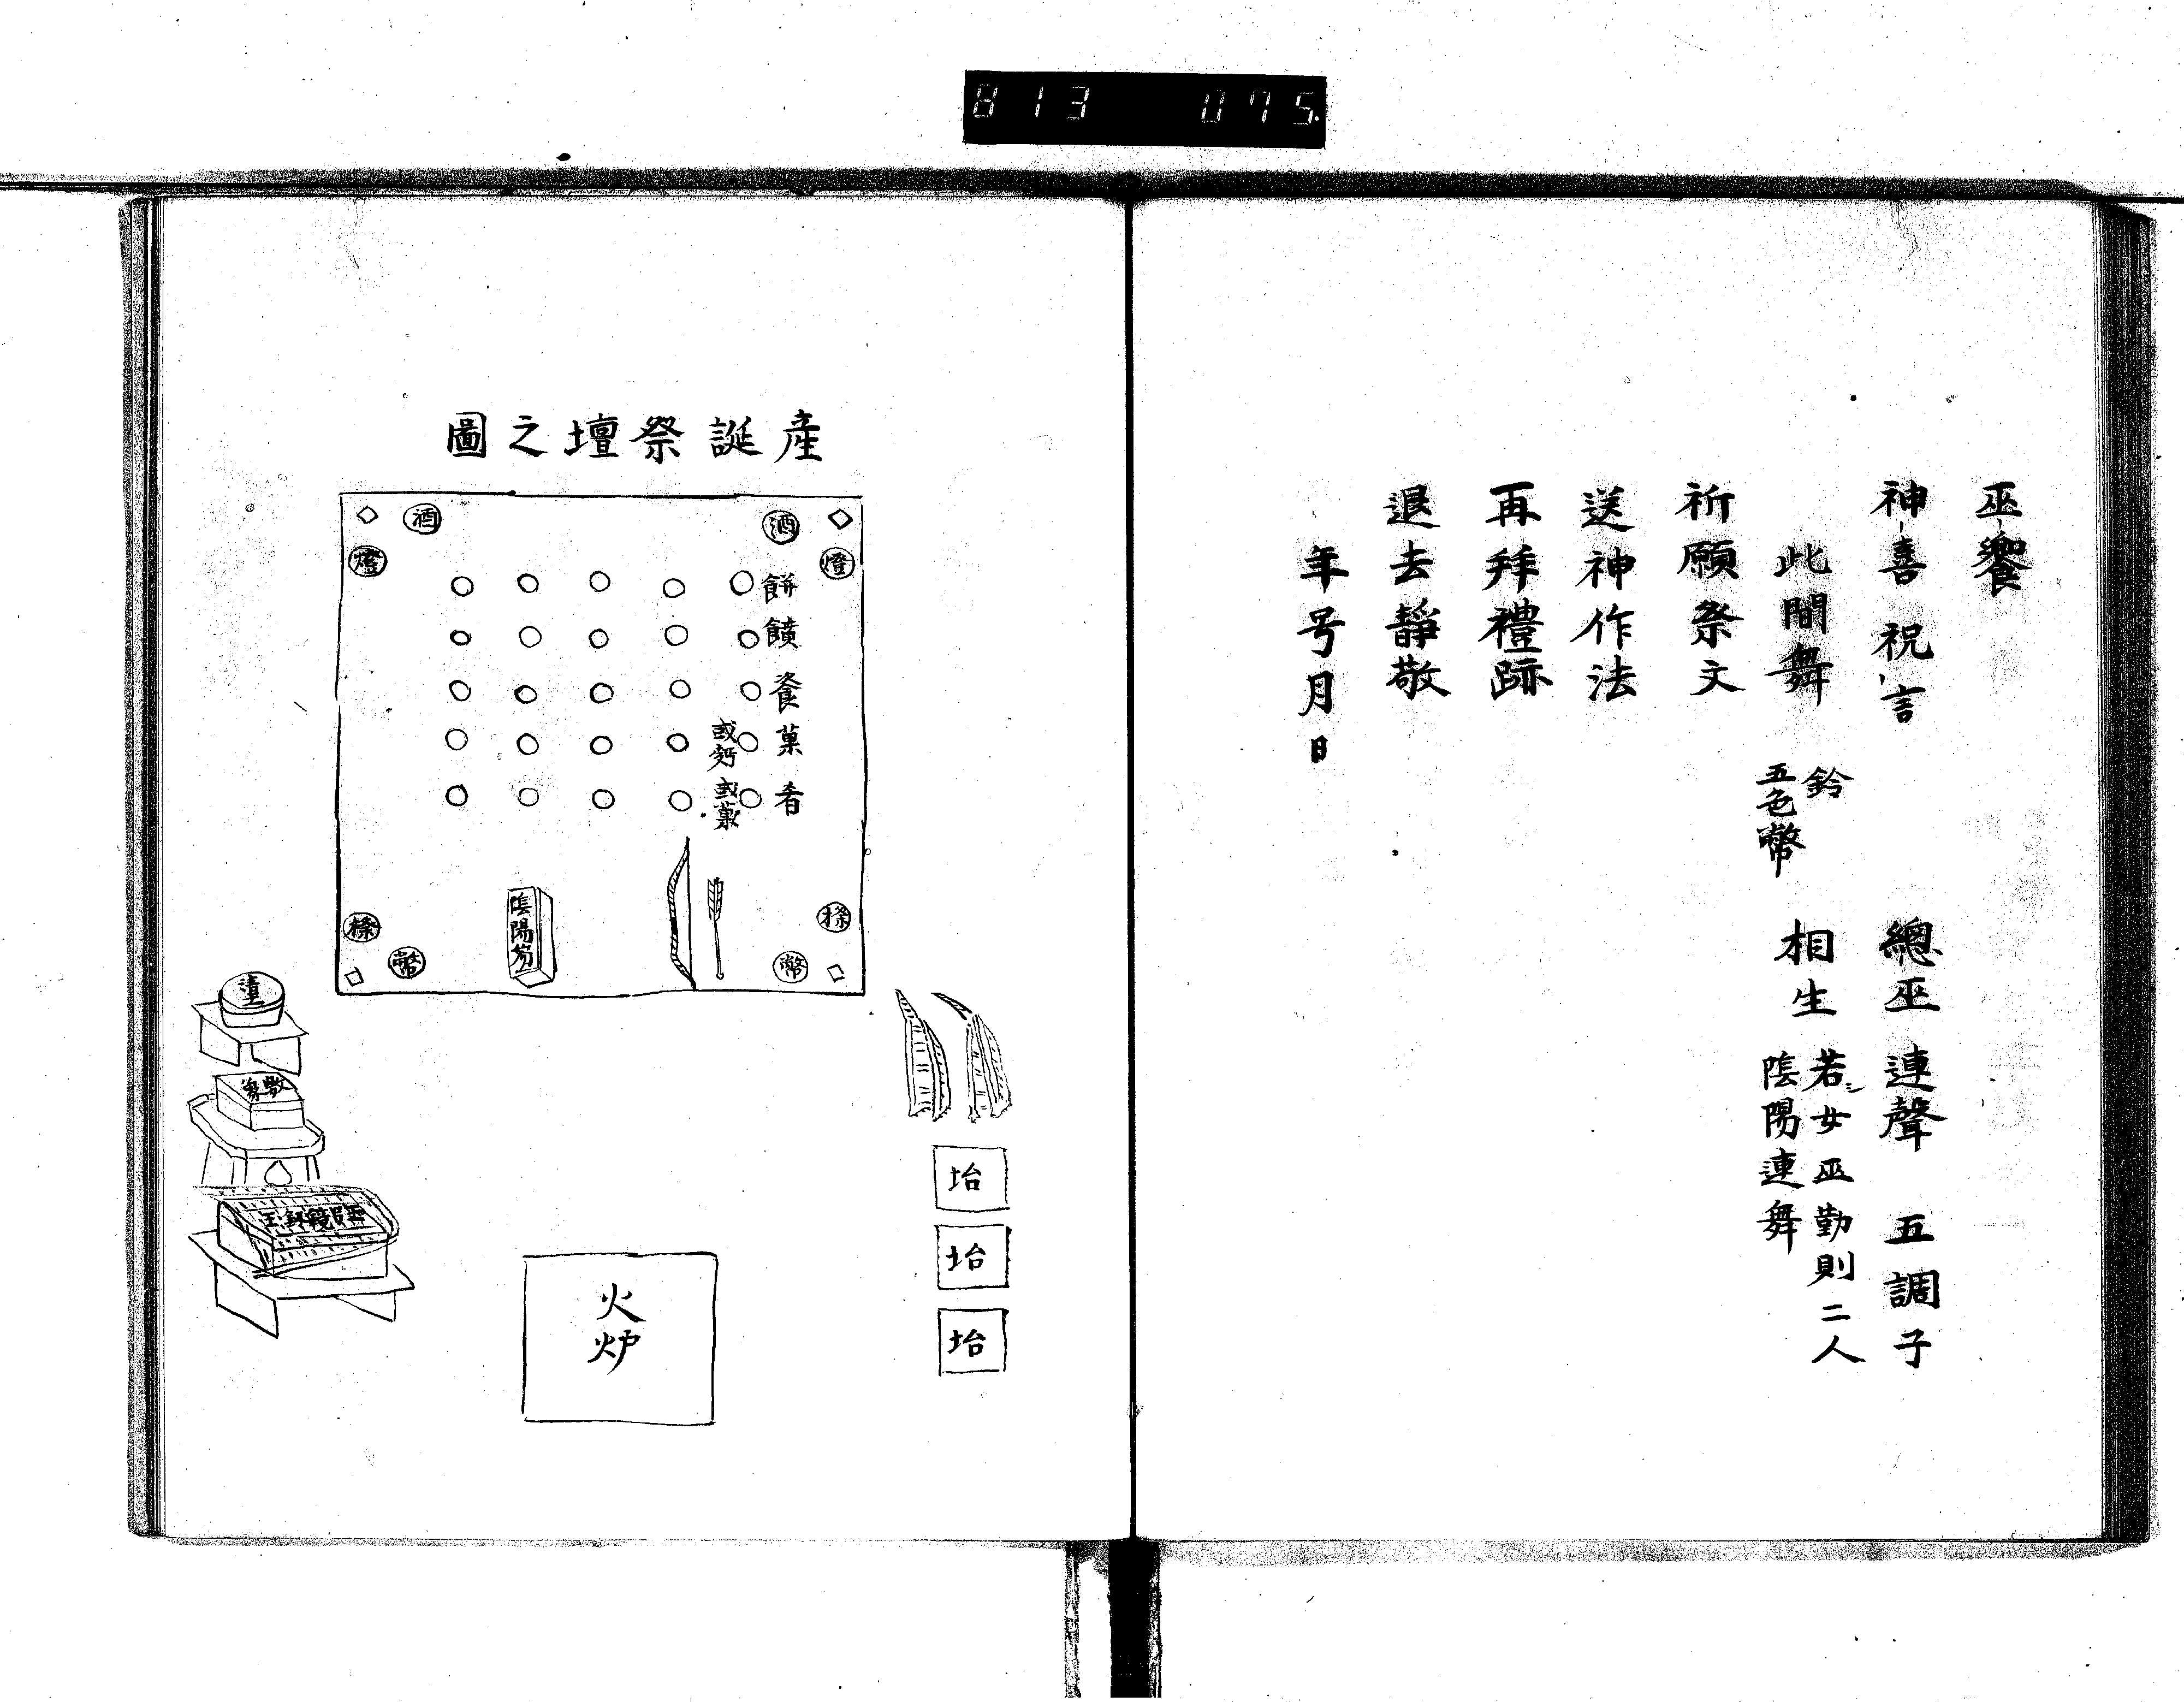 813 075
巫饗
神喜祝言 總巫連聲 五調子
此間舞 鈴 五色幣 相生 若女巫勤則二人 陰陽連舞
祈願祭文
送神作法
再拜禮跡
退去靜敬
年号月日
產誕祭壇之圖
酒 酒
燈 燈
餅
饙
餈
菓 或
肴 或菓
陰陽笏
幣 幣
坮
坮
坮
火炉